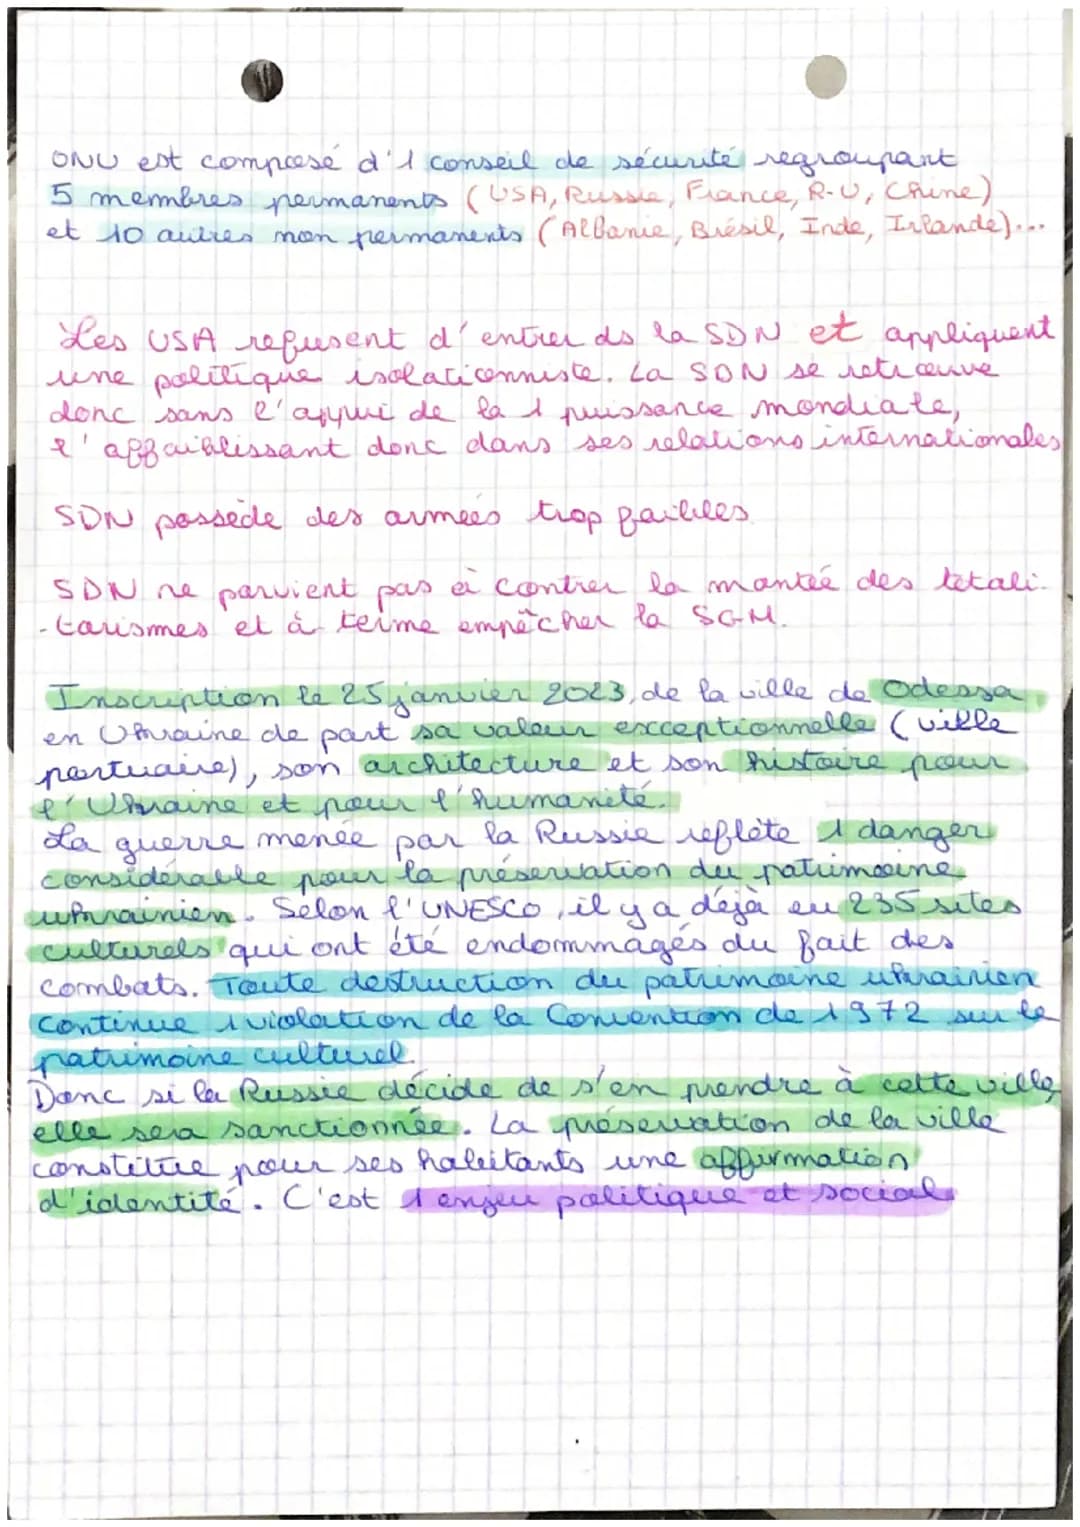 ONU est composé d'1 conseil de sécurité regroupant
5 membres permanents (USA, Russie, France, R-U, Chine)
et 10 autres non permanents (Albanie, Brésil, Inde, Irlande)...
Les USA refusent d'entrer ds la SDN et appliquent
une politique isolationniste. La SDN se retrouve
donc sans l'appui de la 1 puissance mondiale,
l'affaiblissant donc dans ses relations internationales
SDN possède des armées trop faibles
SDN ne parvient pas à contrer la montée des totali-
-tarismes et à terme empêcher la SGM.
Inscription le 25 janvier 2023, de la ville de Odessa
en Ukraine de part sa valeur exceptionnelle (ville
portuaire), son architecture et son histoire pour
l'Ukraine et pour l'humanité.
La guerre menée par la Russie reflète 1 danger
considérable pour la préservation du patrimoine
ukrainien. Selon l'UNESCO, il y a déjà eu 235 sites
culturels qui ont été endommagés du fait des
combats. Toute destruction du patrimoine ukrainien
continue 1 violation de la Convention de 1972 sur le
patrimoine culturel.
Donc si la Russie décide de s'en prendre à cette ville,
elle sera sanctionnée. La préservation de la ville
constitue pour ses habitants une affirmation
d'identité. C'est 1 enjeu politique et social